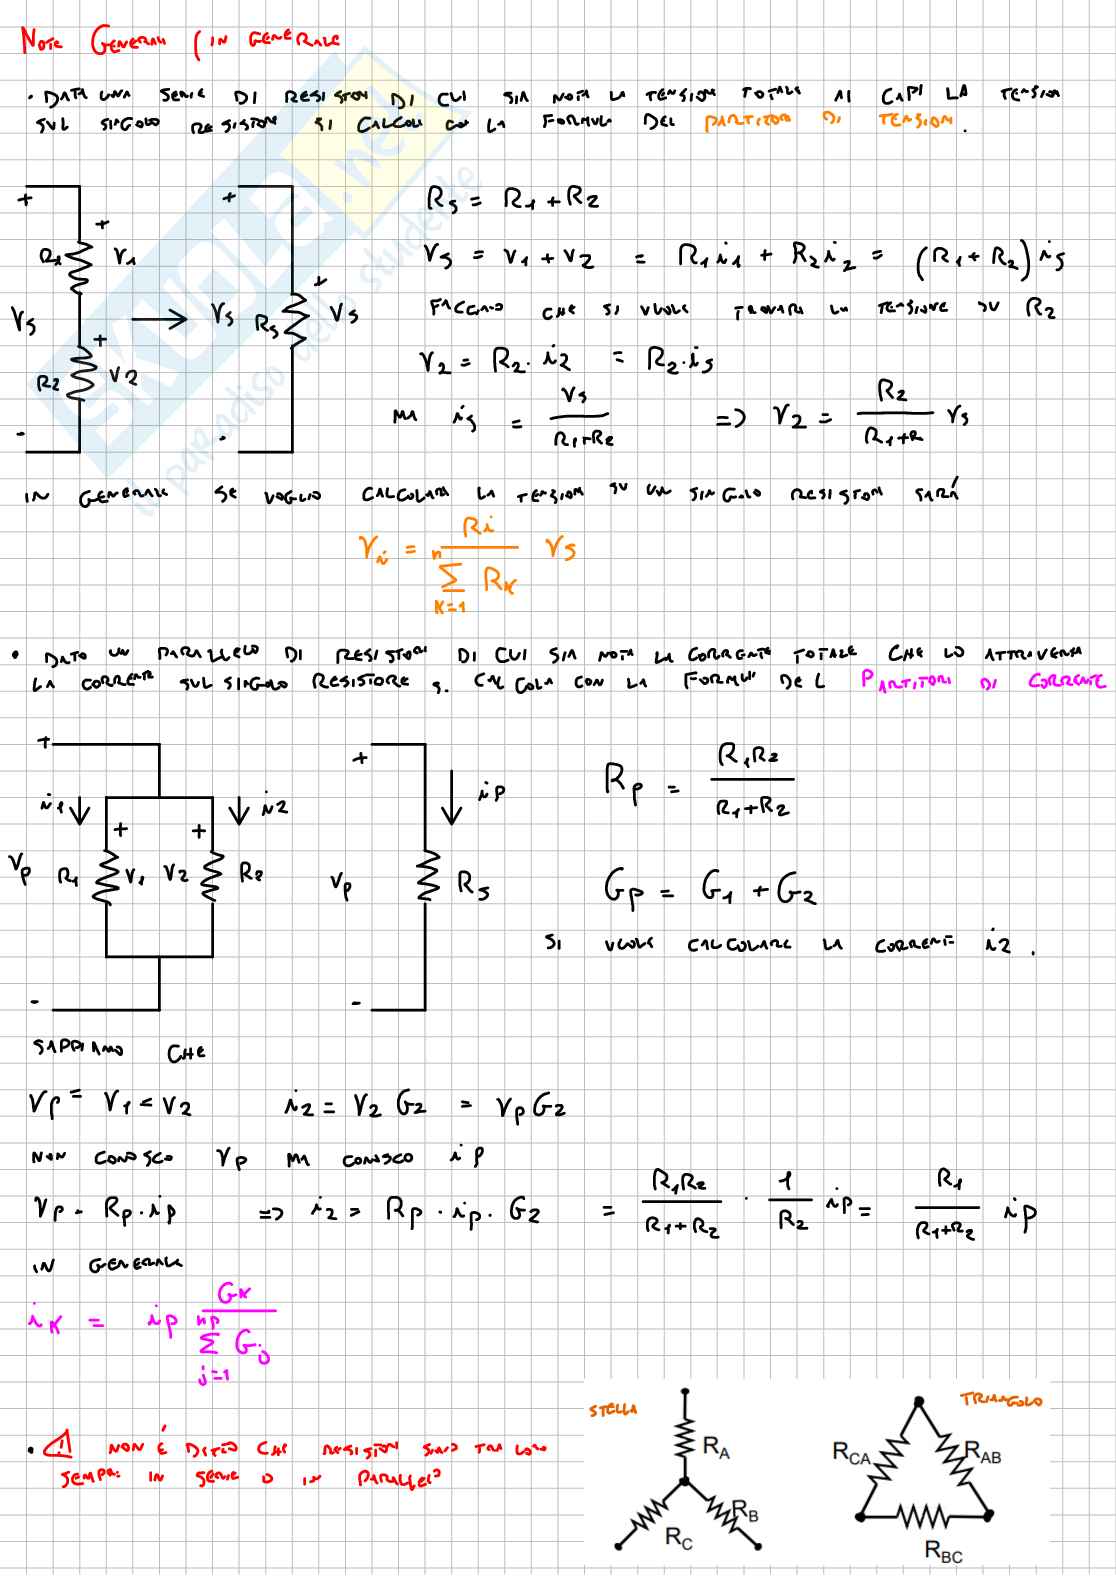 NOTE GENERALI (IN GENERALE
• DATA UNA SERIE DI RESISTORI DI CUI SIA NOTA LA TENSIONE TOTALE AI CAPI LA TENSION
SUL SINGOLO RESISTORE SI CALCOLA CON LA FORMULA DEL PARTITORE DI TENSIONE.
+ + + +
R1 V1 Vs R2 V2 + -
Vs Rs Vs + -
Rs = R1 + R2
Vs = V1 + V2 = R1 i1 + R2 i2 = (R1 + R2) is
FACCIAMO CHE SI VUOLE TROVARE LA TENSIONE SU R2
V2 = R2 · i2 = R2 · is
MA is = Vs / R1+R2 => V2 = R2 / R1+R Vs
IN GENERALE SE VOGLIO CALCOLARE LA TENSIONE SU UN SINGOLO RESISTORE SARÀ
Vi = Ri / n Σ K=1 RK Vs
• DATO UN PARALLELO DI RESISTORI DI CUI SIA NOTA LA CORRENTE TOTALE CHE LO ATTRAVERSA
LA CORRENTE SUL SINGOLO RESISTORE SI CALCOLA CON LA FORMULA DEL PARTITORE DI CORRENTE
+ i1 i2 + +
Vp R1 V1 V2 R2 -
+ ip Vp Rs -
Rp = R1R2 / R1+R2
Gp = G1 + G2
SI VUOLE CALCOLARE LA CORRENTE i2.
SAPPIAMO CHE
Vp = V1 = V2 i2 = V2 G2 = Vp G2
NON CONOSCO Vp MA CONOSCO ip
Vp = Rp · ip => i2 = Rp · ip · G2 = R1R2 / R1+R2 · 1 / R2 ip = R1 / R1+R2 ip
IN GENERALE
iK = ip GK / np Σ j=1 Gj
• ! NON È DETTO CHE RESISTORI SIANO TRA LORO
SEMPRE IN SERIE O IN PARALLELO
STELLA
RA
RB
RC
TRIANGOLO
RCA
RAB
RBC
SKUOLA.net
il paradiso dello studente